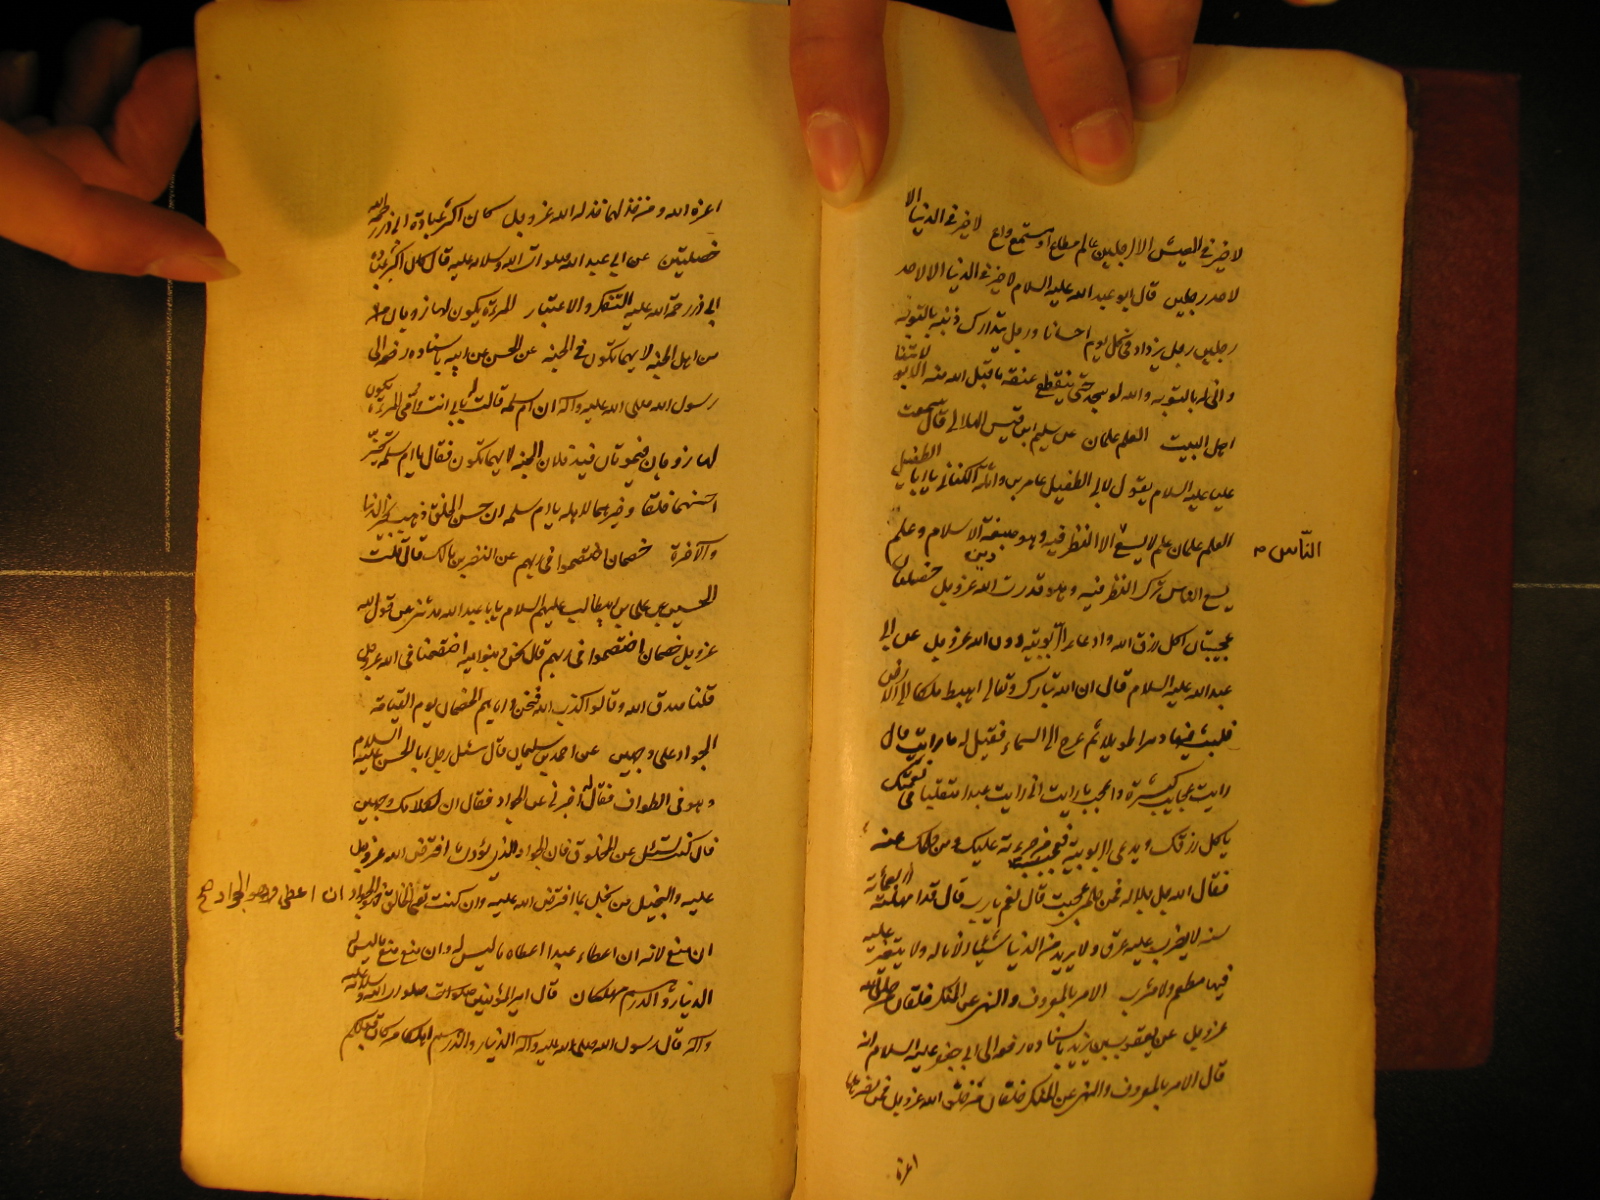 لا خير في العيش الا لرجلين عالم مطاع او مستمع واع لا خير في الدنيا الا
لاحد رجلين قال ابو عبد الله عليه السلام لا خير في الدنيا الا لاحد
رجلين رجل يزداد في كل يوم احسانا ورجل يتدارك ذنبه بالتوبه
وانى له بالتوبه والله لو سجد حتى ينقطع عنقه ما قبل الله منه الا بولايتنا
اهل البيت العلم علمان عن سليم ابن قيس الهلالي قال سمعت
عليا عليه السلام يقول لابي الطفيل عامر بن واثلة الكناني يا ابا الطفيل
العلم علمان علم لا يسع الا النظر فيه وهو صبغة الاسلام وعلم
الناس
يسع الناس ترك النظر فيه وهو قدرت الله عز وجل خصلتان
عجيبتان اكل رزق الله وادعاء الربوبيه دون الله عز وجل عن ابي
عبد الله عليه السلام قال ان الله تبارك وتعالى اهبط ملكا الى الارض
فلبث فيها دهرا طويلا ثم عرج الى السماء فقيل له ما رايت قال
رايت عجايب كثيرة واعجب ما رايت اني رايت عبدا متقلبا في نعمتك
ياكل رزقك ويدعى الربوبية فعجبت من جرءته عليك ومن حلمك عنه
فقال الله جل جلاله فمن حلمي عجبت قال نعم يا رب قال قد امهلته اربعمائة
سنه لا يضرب عليه عرق ولا يريد من الدنيا شيئا الا ناله ولا يتغير عليه
فيها مطعم ولا مشرب الامر بالمعروف والنهى عن المنكر خلقان من خلق الله
عز وجل عن يعقوب بن يزيد باسناده رفعه الى ابي جعفر عليه السلام انه
قال الامر بالمعروف والنهى عن المنكر خلقان من خلق الله عز وجل فمن نصرهما
اعزه
اعزه الله ومن خذلهما خذله الله عز وجل كان اكثر عبادة ابي ذر رحمه الله
خصلتين عن ابي عبد الله صلوات الله وسلامه عليه قال كان اكثر عبادة
ابي ذر رحمة الله عليه التفكر والاعتبار المرءة يكون لها زوجان
من اهل الجنه لايهما تكون في الجنه عن الحسن عن ابيه باسناده رفعه الى
رسول الله صلى الله عليه وآله ان ام سلمه قالت له بابي انت وامى المرءة يكون
لها زوجان فيموتان فيدخلان الجنه لايهما تكون فقال يا ام سلمه تخير
احسنهما خلقا وخيرهما لاهله يا ام سلمه ان حسن الخلق ذهب بخير الدنيا
والآخرة خصمان اختصموا في ربهم عن النضر بن مالك قال قلت
الحسين بن على بن ابيطالب عليهم السلام يا با عبد الله حدثني عن قول الله
عز وجل خصمان اختصموا في ربهم قال نحن وبنو اميه اختصمنا في الله عز وجل
قلنا صدق الله وقالوا كذب الله فنحن واياهم الخصمان يوم القيامة
الجواد على وجهين عن احمد بن سليمان قال سئل رجل ابا الحسن عليه السلام
وهو في الطواف فقال له اخبرني عن الجواد فقال ان لكلامك وجهين
فان كنت تسئل عن المخلوق فان الجواد الذي يؤدى ما افترض الله عز وجل
عليه والبخيل من بخل بما افترض الله عليه وان كنت تعنى الخالق فهو الجواد ان اعطى وهو الجواد صح
ان منع لانه ان اعطاء عبدا اعطاه ما ليس له وان منع منع ما ليس له
الدينار والدرهم مهلكان قال امير المؤمنين صلوات الله وسلامه عليه
وآله قال رسول الله صلى الله عليه وآله الدينار والدرهم اهلكا من كان قبلكم